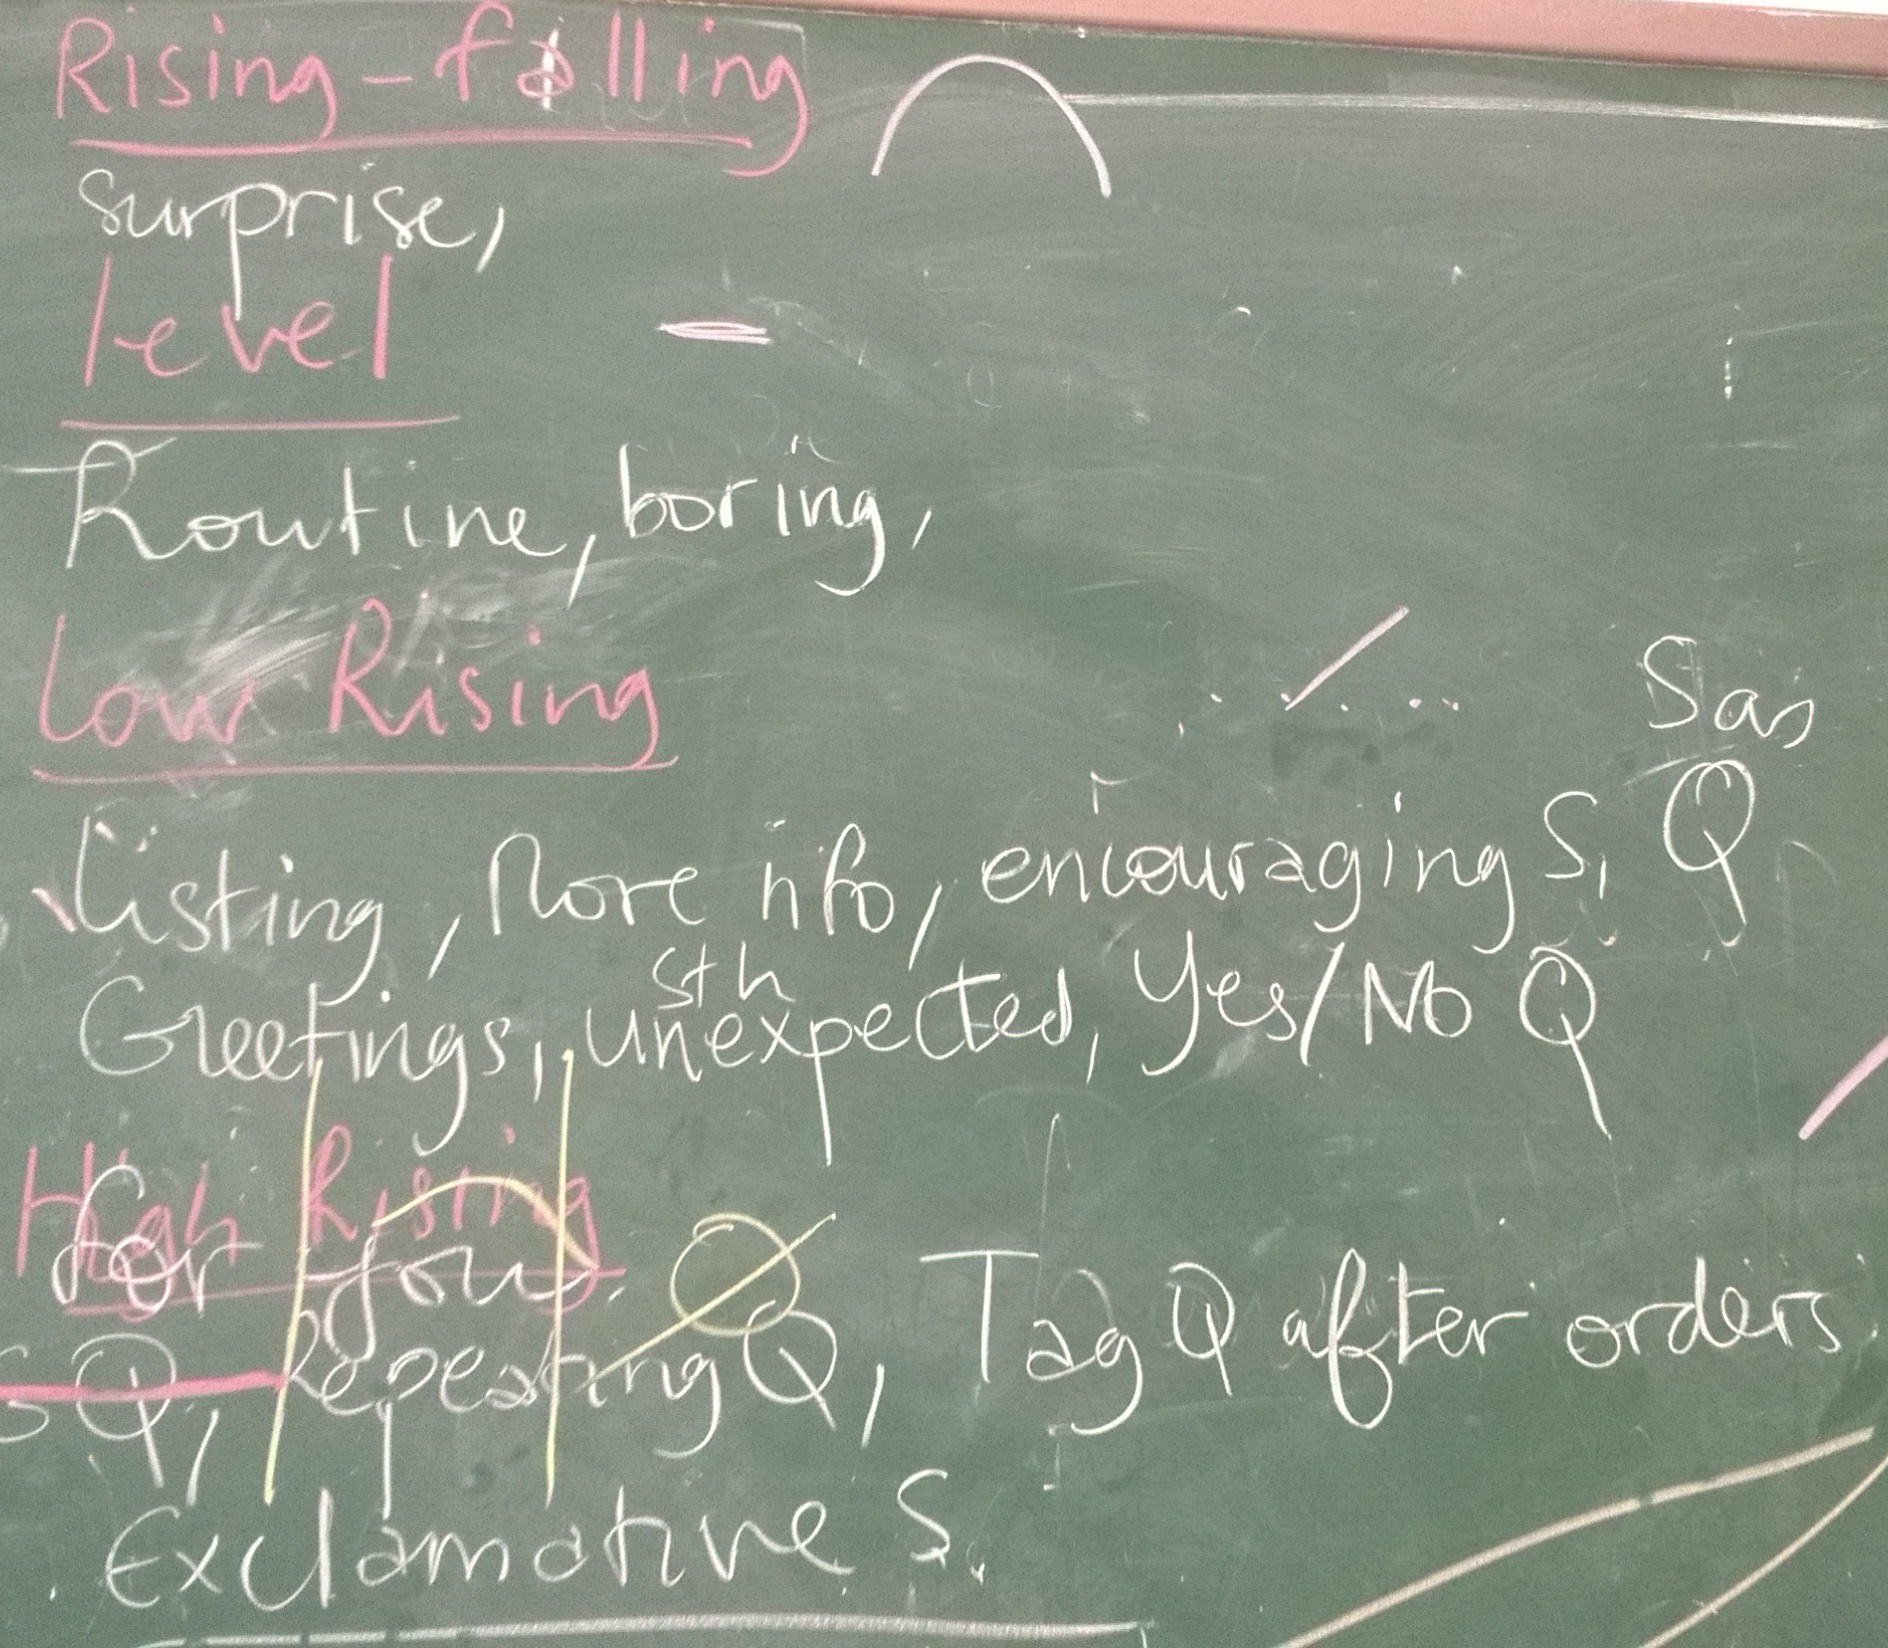 Rising-falling
surprise,
level
Routine, boring,
Low Rising
Sas
Listing, More info, encouraging S, Q
Greetings, sth unexpected, Yes/No Q
High Rising
for you.
S Q, Repeating Q, Tag Q after orders
Exclamative S.